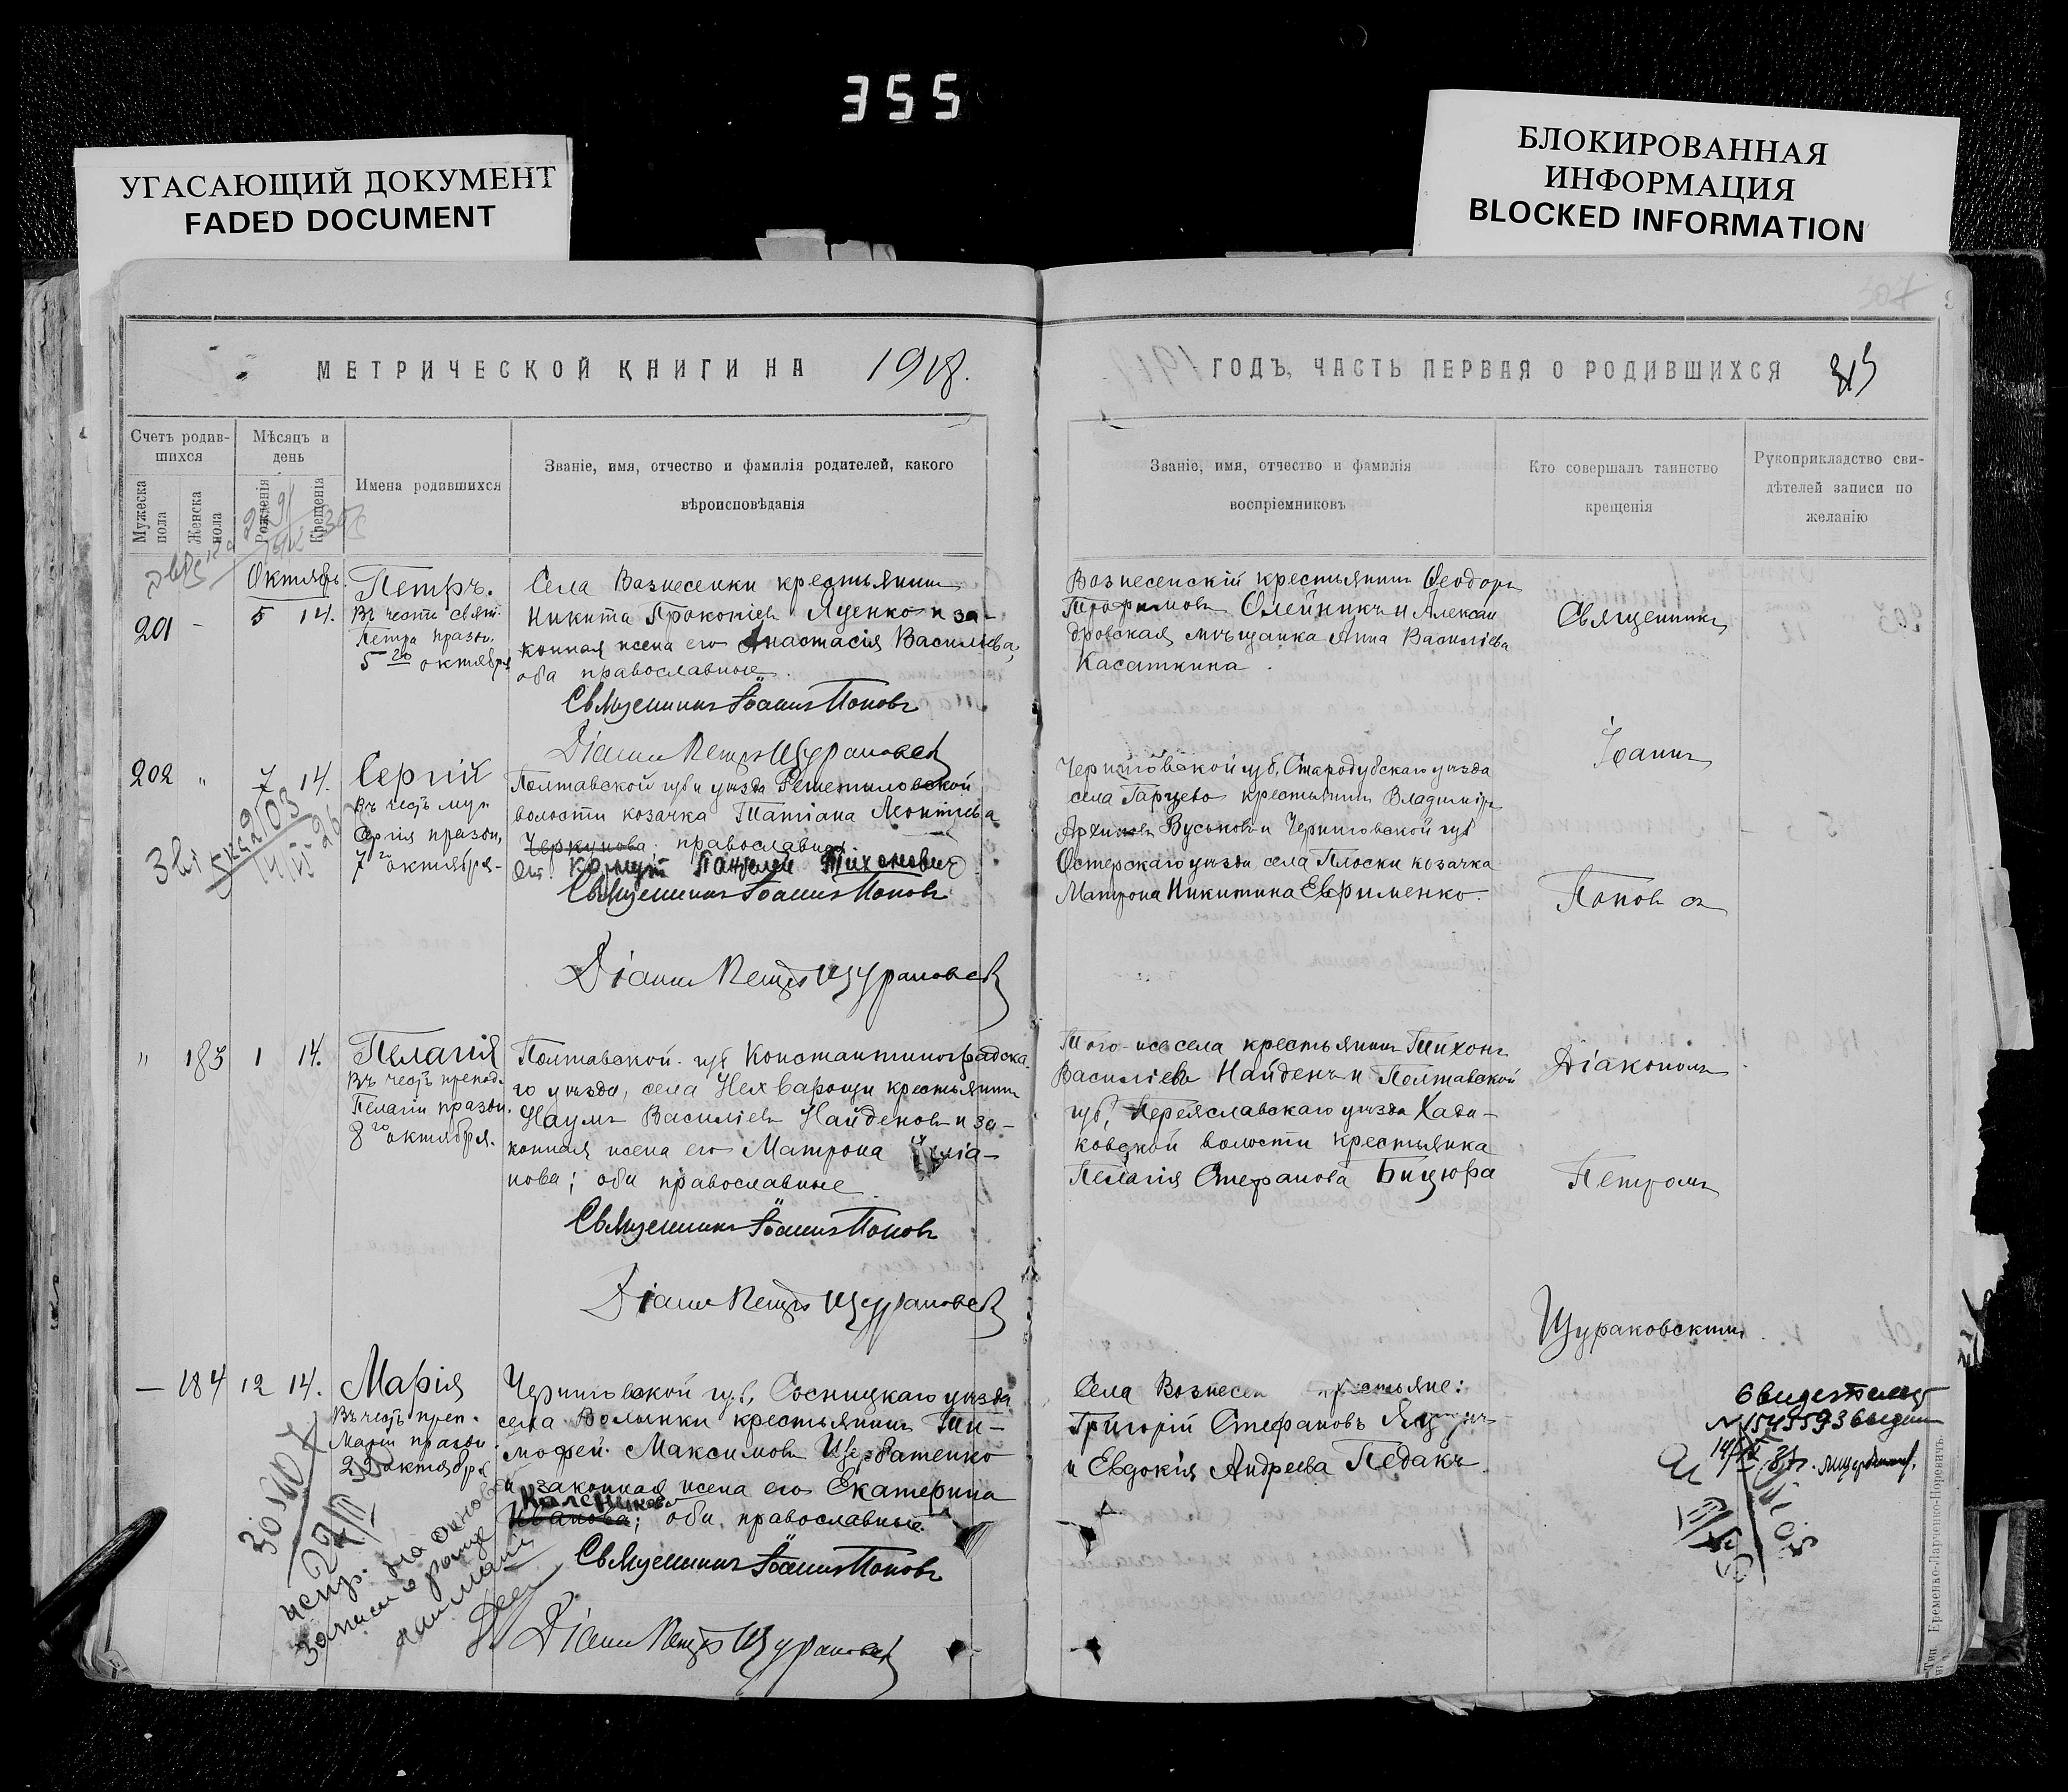 355
УГАСАЮЩИЙ ДОКУМЕНТ
FADED DOCUMENT
БЛОКИРОВАННАЯ
ИНФОРМАЦИЯ
BLOCKED INFORMATION
307
МЕТРИЧЕСКОЙ КНИГИ НА 1918.
Счетъ родив-
шихся
Мѣсяцъ и
день
Имена родившихся
Званіе, имя, отчество и фамилія родителей, какого
вѣроисповѣданія
Мужеска
пола
Женска
пола
Рожденія
Крещенія
Октябрь.
201 - 5 14.
Петръ.
Въ честь свят.
Петра праздн.
5 го октября
Села Вознесенки крестьянинъ
Никита Прокопіевъ Яценко и за-
конная жена его Анастасія Васильева,
оба православные.
Священникъ Іоаннъ Поповъ
Діаконъ Петръ Щураковскій
202 " 7 14.
Сергій
Въ честь муч.
Сергія праздн.
7 го октября-
Полтавской губ и уѣзда Решетиловской
волости козачка Татіана Леонтіева
Черкунова православная
От. Коршун Пантелей Тихонович
Священникъ Іоаннъ Поповъ
Діаконъ Петръ Щураковскій
" 183 1 14.
Пелагія
Въ честь препод.
Пелагіи праздн.
8 го октября.
Полтавской губ Константиноградска-
го уѣзда, села Нехварощи крестьянинъ
Наумъ Василіевъ Найденовъ и за-
конная жена его Матрона
нова; оба православные
Священникъ Іоаннъ Поповъ
Діаконъ Петръ Щураковскій
— 184 12 14.
Марія
Въ честь преп.
Маріи праздн.
октября
Черниговской губ, Сосницкаго уѣзда
села Волынки крестьянинъ Ти-
мофей Максимовъ Щербатенко
и законная жена его Екатерина
Каленикова
Иванова; оба православные.
Священникъ Іоаннъ Поповъ
Діаконъ Петръ Щураковскій
испр. на основ
записи о
ГОДЪ, ЧАСТЬ ПЕРВАЯ О РОДИВШИХСЯ
Званіе, имя, отчество и фамилія
воспріемниковъ
Кто совершалъ таинство
крещенія
Рукоприкладство сви-
дѣтелей записи по
желанію
Вознесенскій крестьянинъ Ѳеодоръ
Трофимовъ Олейникъ и Алексан
дровская мѣщанка Анна Василіева
Касаткина.
Черниговской губ, Стародубскаго уѣзда
села Гарцево крестьянинъ Владиміръ
Архиповъ Вуськовъ и Черниговской губ
Остерскаго уѣзда села Плоски козачка
Матрона Никитина Евфименко.
Того-же села крестьянинъ Тихонъ
Василіевъ Найденъ и Полтавской
губ, Переяславскаго уѣзда Хада-
ковской волости крестьянка
Пелагія Стефанова Бицюра
Села Вознесен крестьяне:
Григорій Стефановъ
и Евдокія Андреева Педакъ.
Священникъ
Іоаннъ
Поповъ съ
Діакономъ
Петромъ
Щураковскимъ.
Тип. Еременко-Ларченко-Норевичъ.